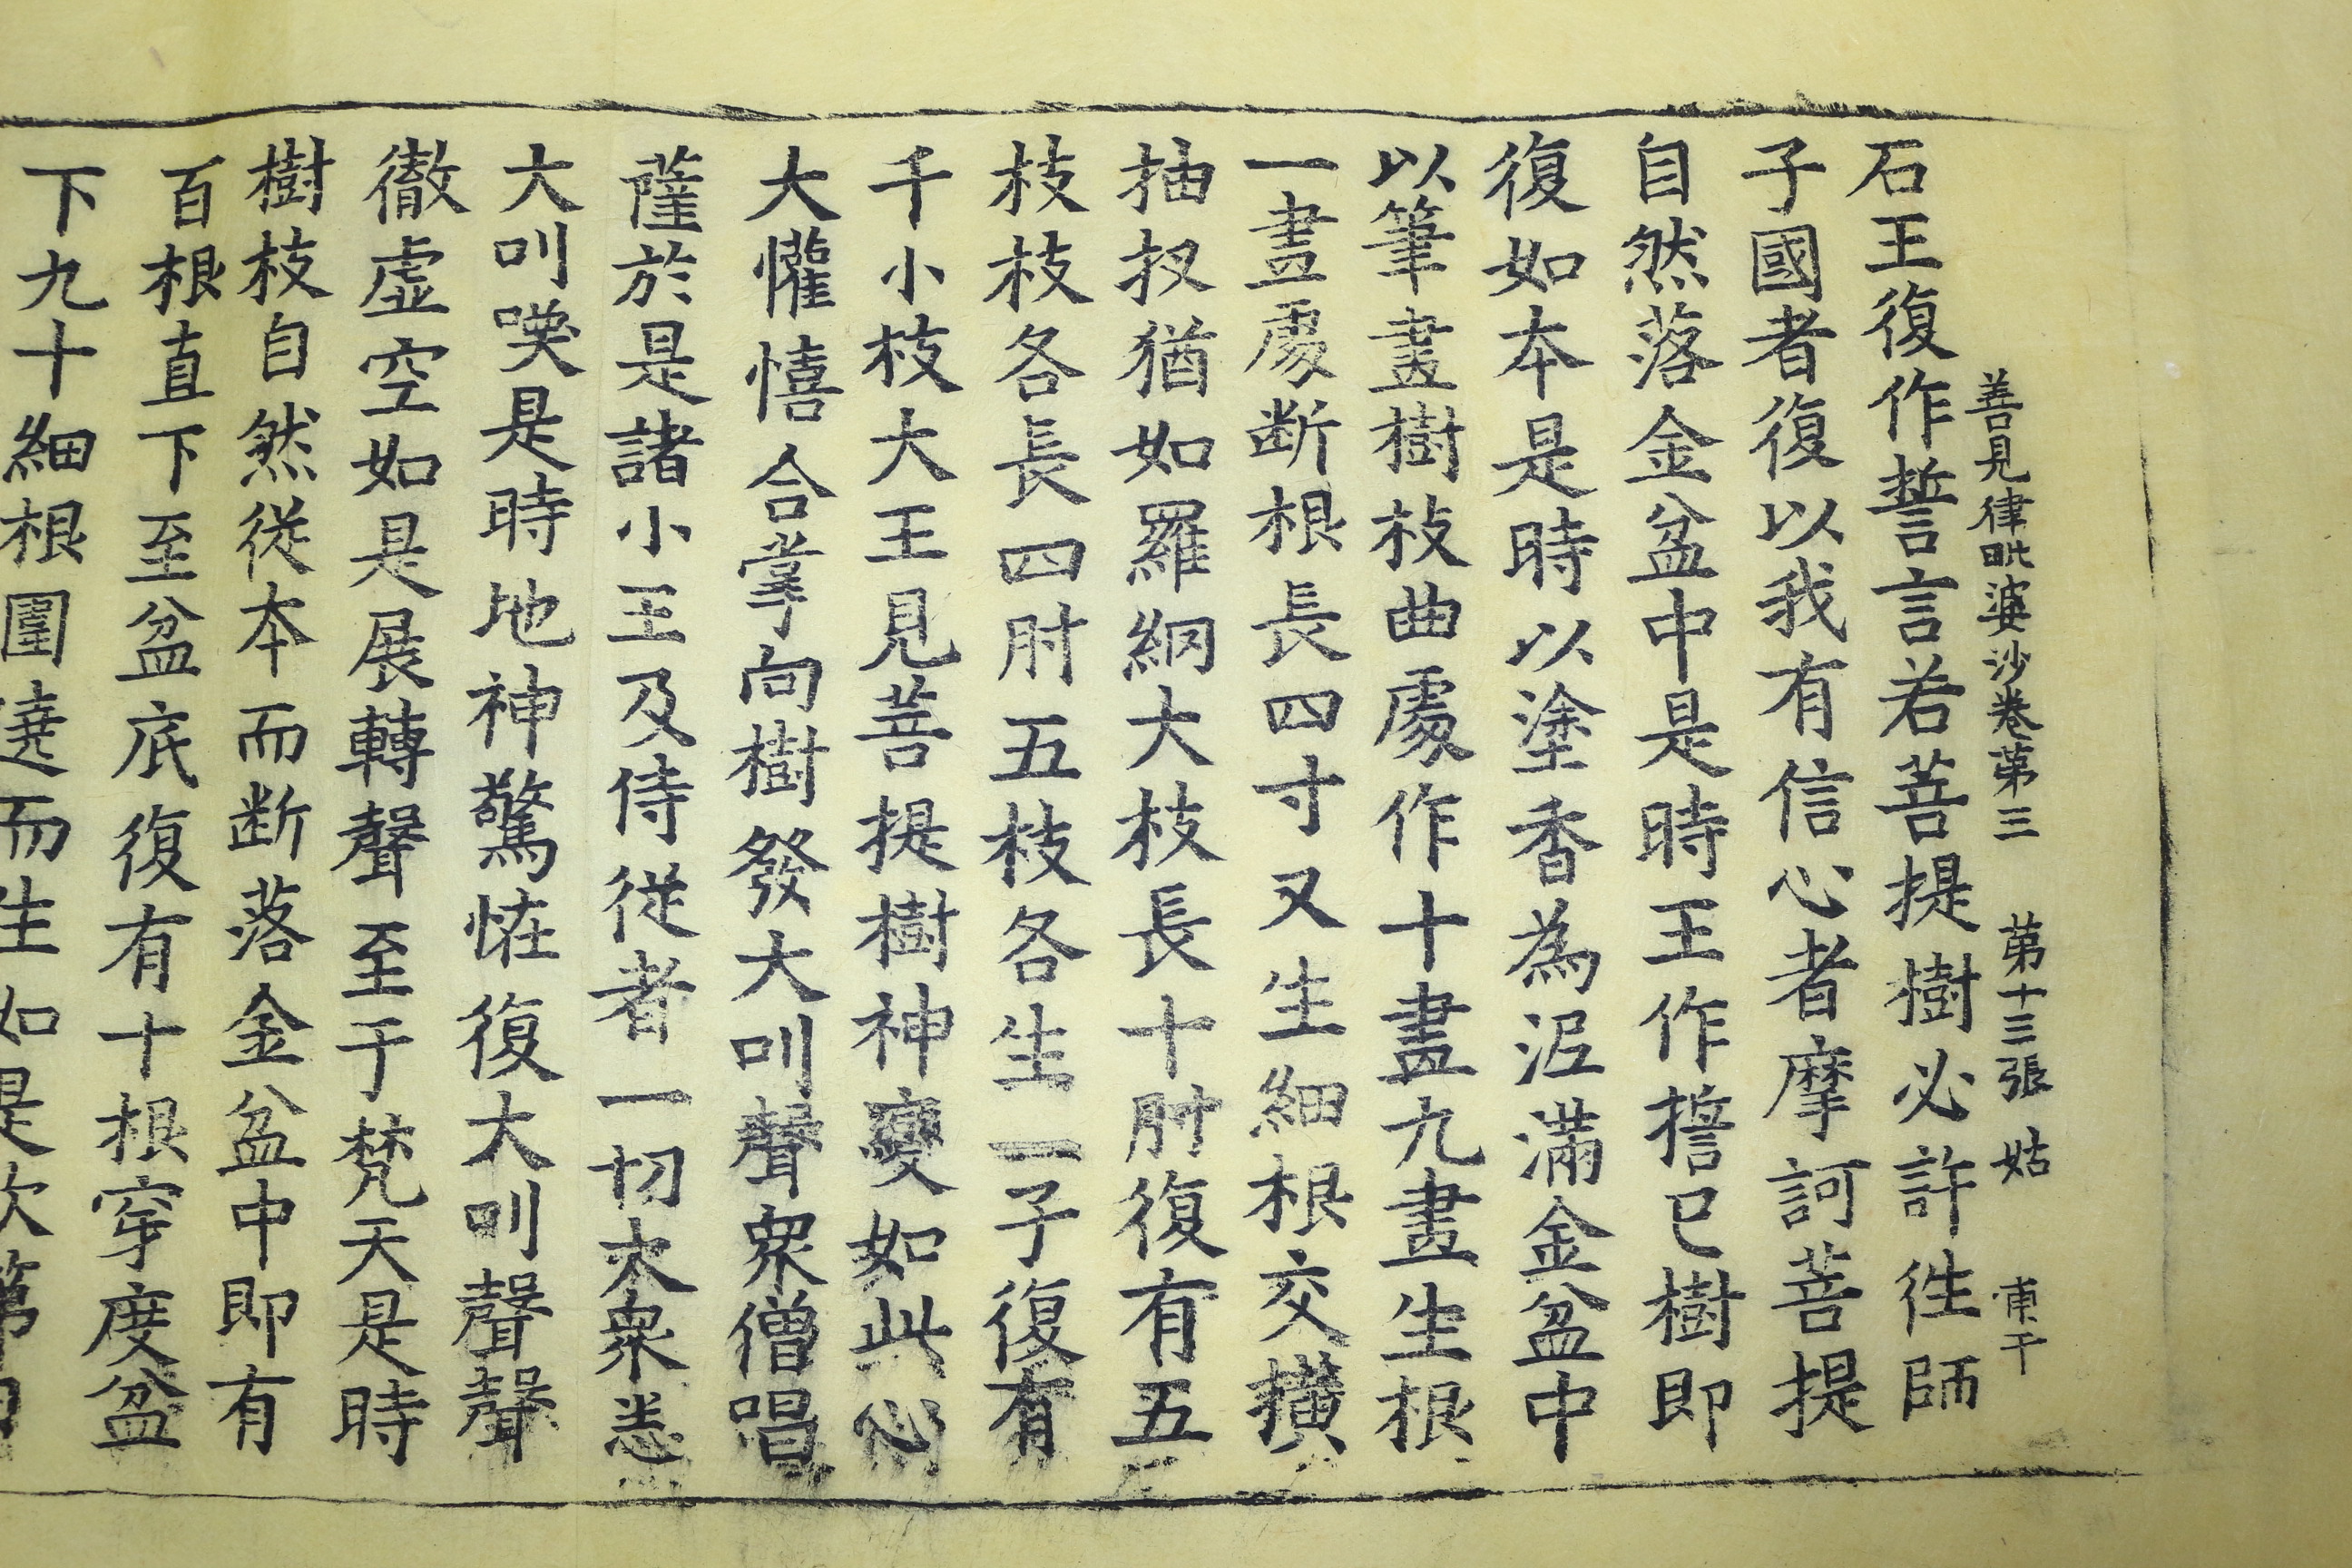 善見律毗婆沙卷苐三 苐十三張 姑
石王復作誓言若菩提樹必許徃師
子國者復以我有信心者摩訶菩提
自然落金盆中是時王作擔已樹即
復如本是時以塗香為泥滿金盆中
以筆畫樹枝曲處作十畫九畫生根
一畫處断根長四寸又生細根交撗
抽扠猶如羅網大枝長十肘復有五
枝枝各長四肘五枝各生一子復有
千小枝大王見菩提樹神變如此心
大懽憘合掌向樹發大叫聲衆僧唱
薩於是諸小王及侍從者一切大衆悉
大叫嘆是時地神驚恠復大叫聲聲
徹虛空如是展轉聲至于梵天是時
樹枝自然從本而断落金盆中即有
百根直下至盆底復有十根穿度盆
下九十細根圍遶而生如是次第